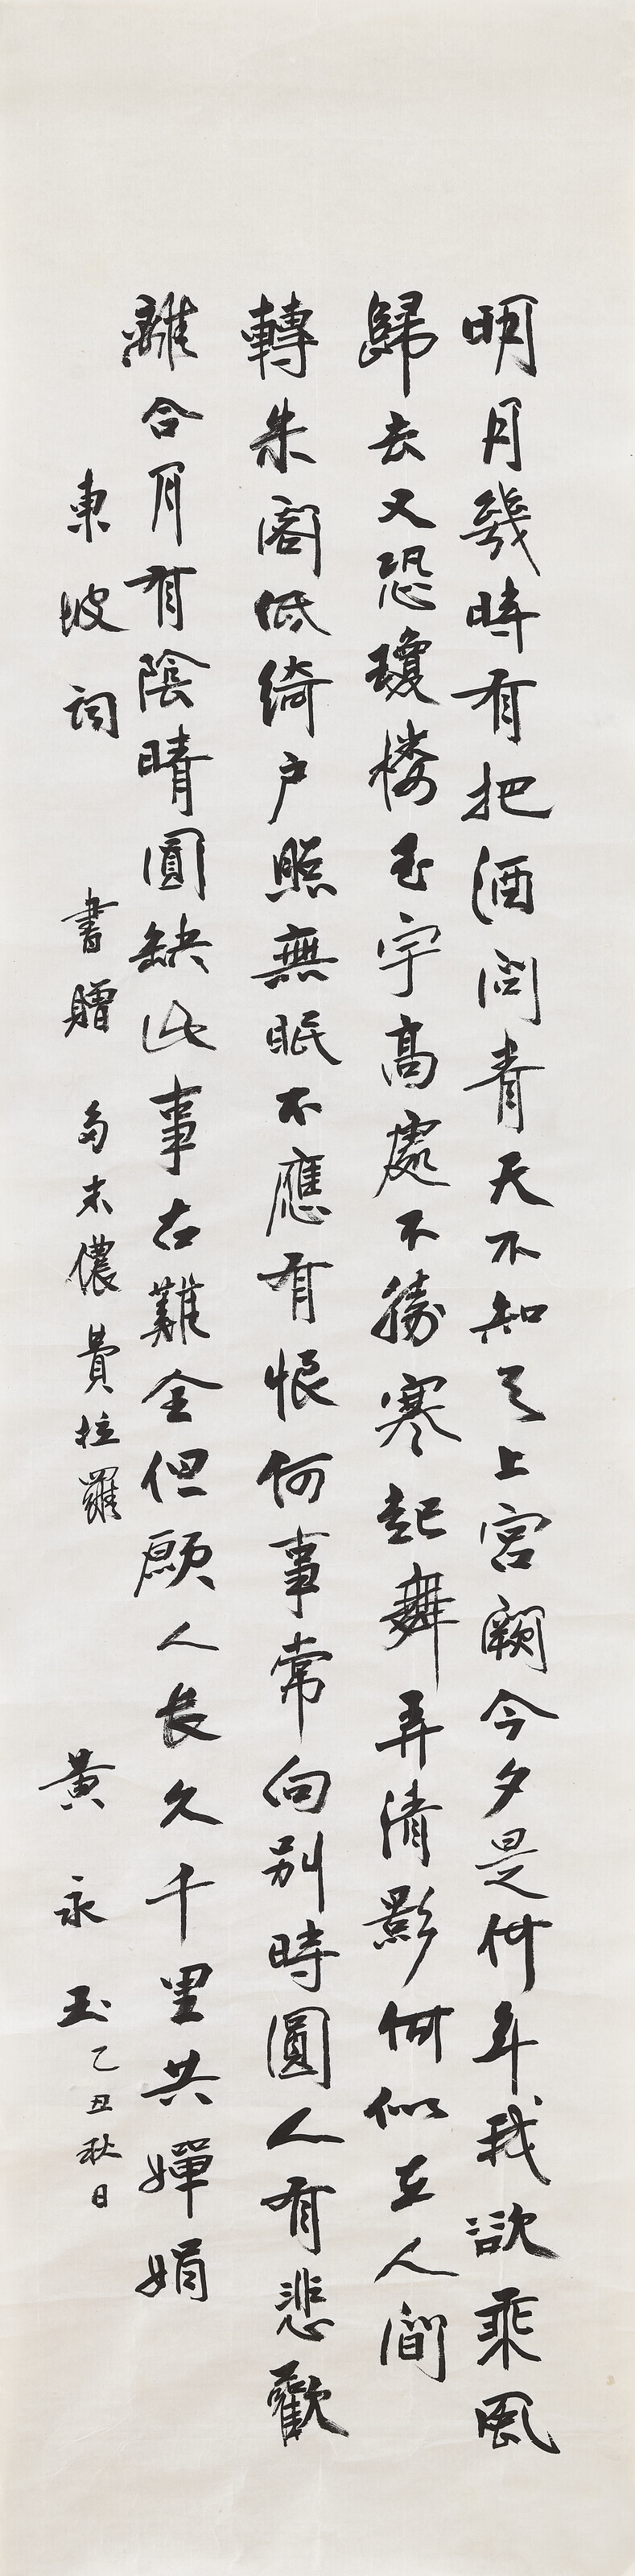 明月幾時有把酒問青天不知天上宮闕今夕是何年我欲乘風
歸去又恐瓊楼玉宇高處不勝寒起舞弄清影何似在人間
轉朱閣低綺户照無眠不應有恨何事常向别時圓人有悲歡
離合月有陰晴圓缺此事古難全但願人長久千里共嬋娟
東坡詞 書贈 多米儂費拉羅 黃永玉 乙丑秋日